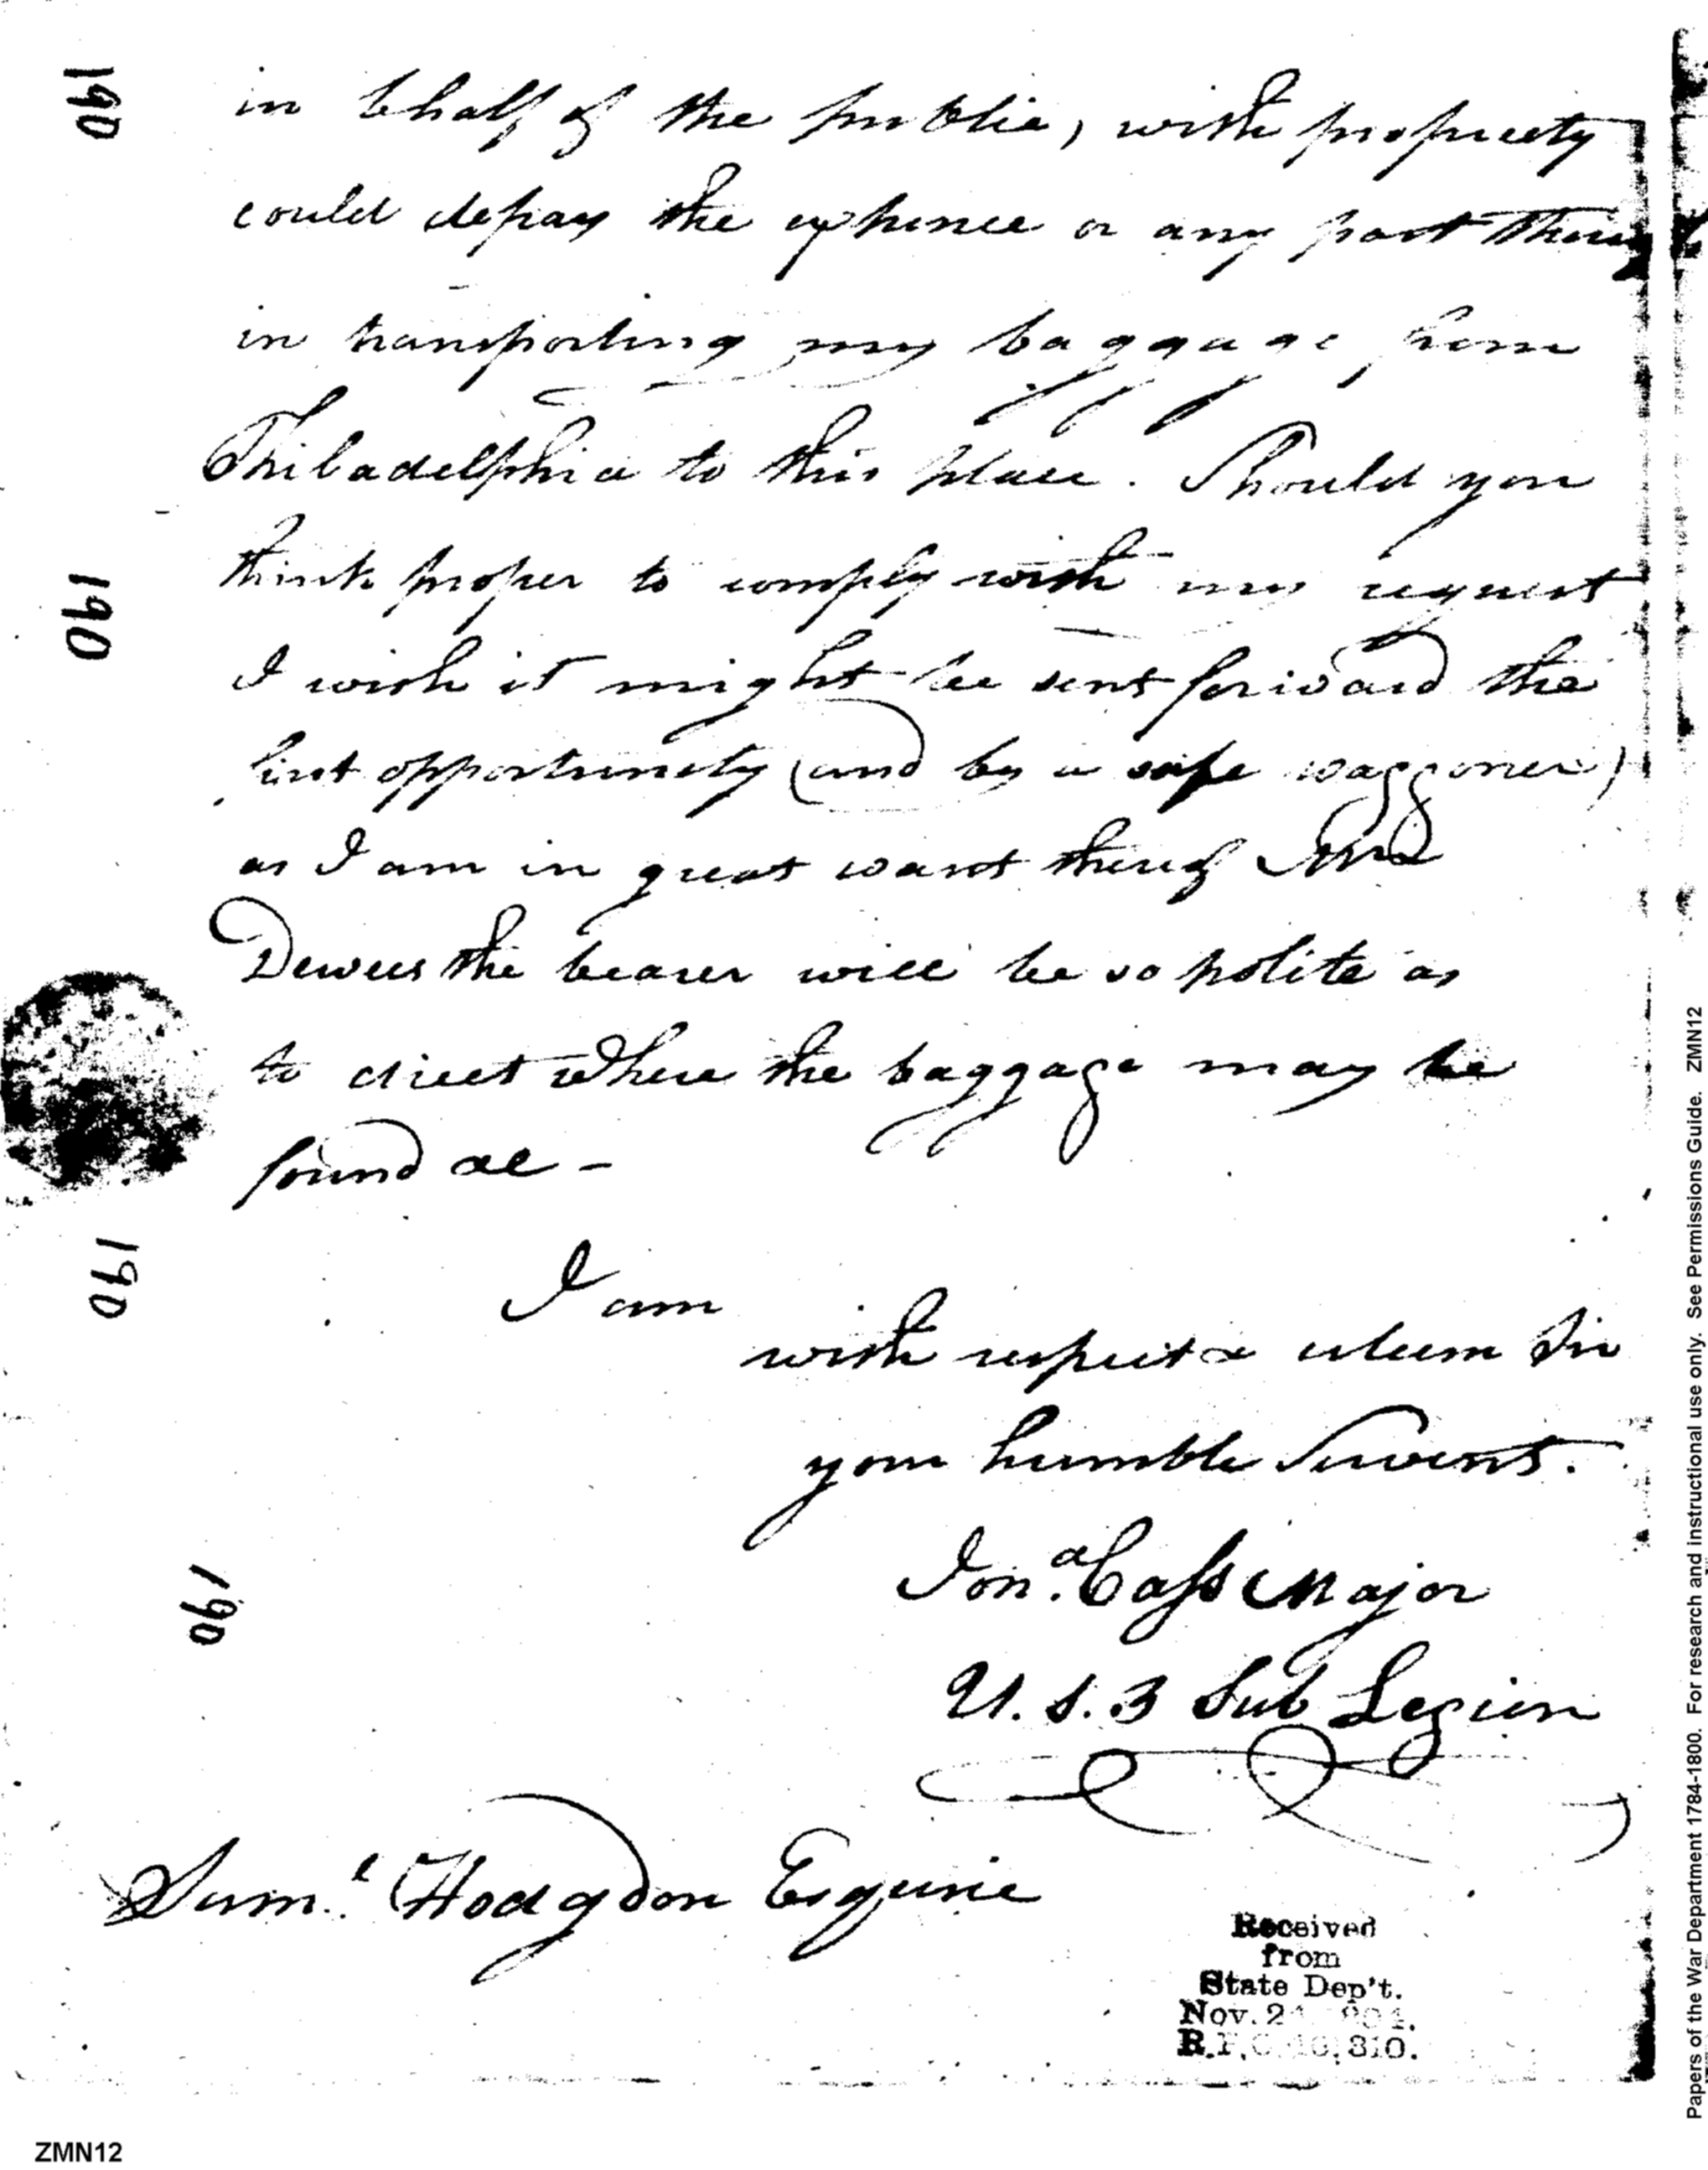 in behalf of the public, with propriety
could defray the expence or any part thereof
in transporting my baggage from
Philadelphia to this place. Should you
think proper to comply with my request
I wish it might be sent forward the
first opportunity (and by a safe waggoner)
as I am in great want thereof
Dewees the bearer will be so polite as
to direct where the baggage may be
found &c -
I am
with respect & esteem Sir
your humble Servent.
Jona. Cass Major
U.S. 3 Sub Legion
Saml. Hodgdon Esquire
Received
from
State Dep't.
Nov. 2
310.
190
190
190
190
ZMN12
Papers of the War Department 1784-1800. For research and instructional use only. See Permissions Guide. ZMN12